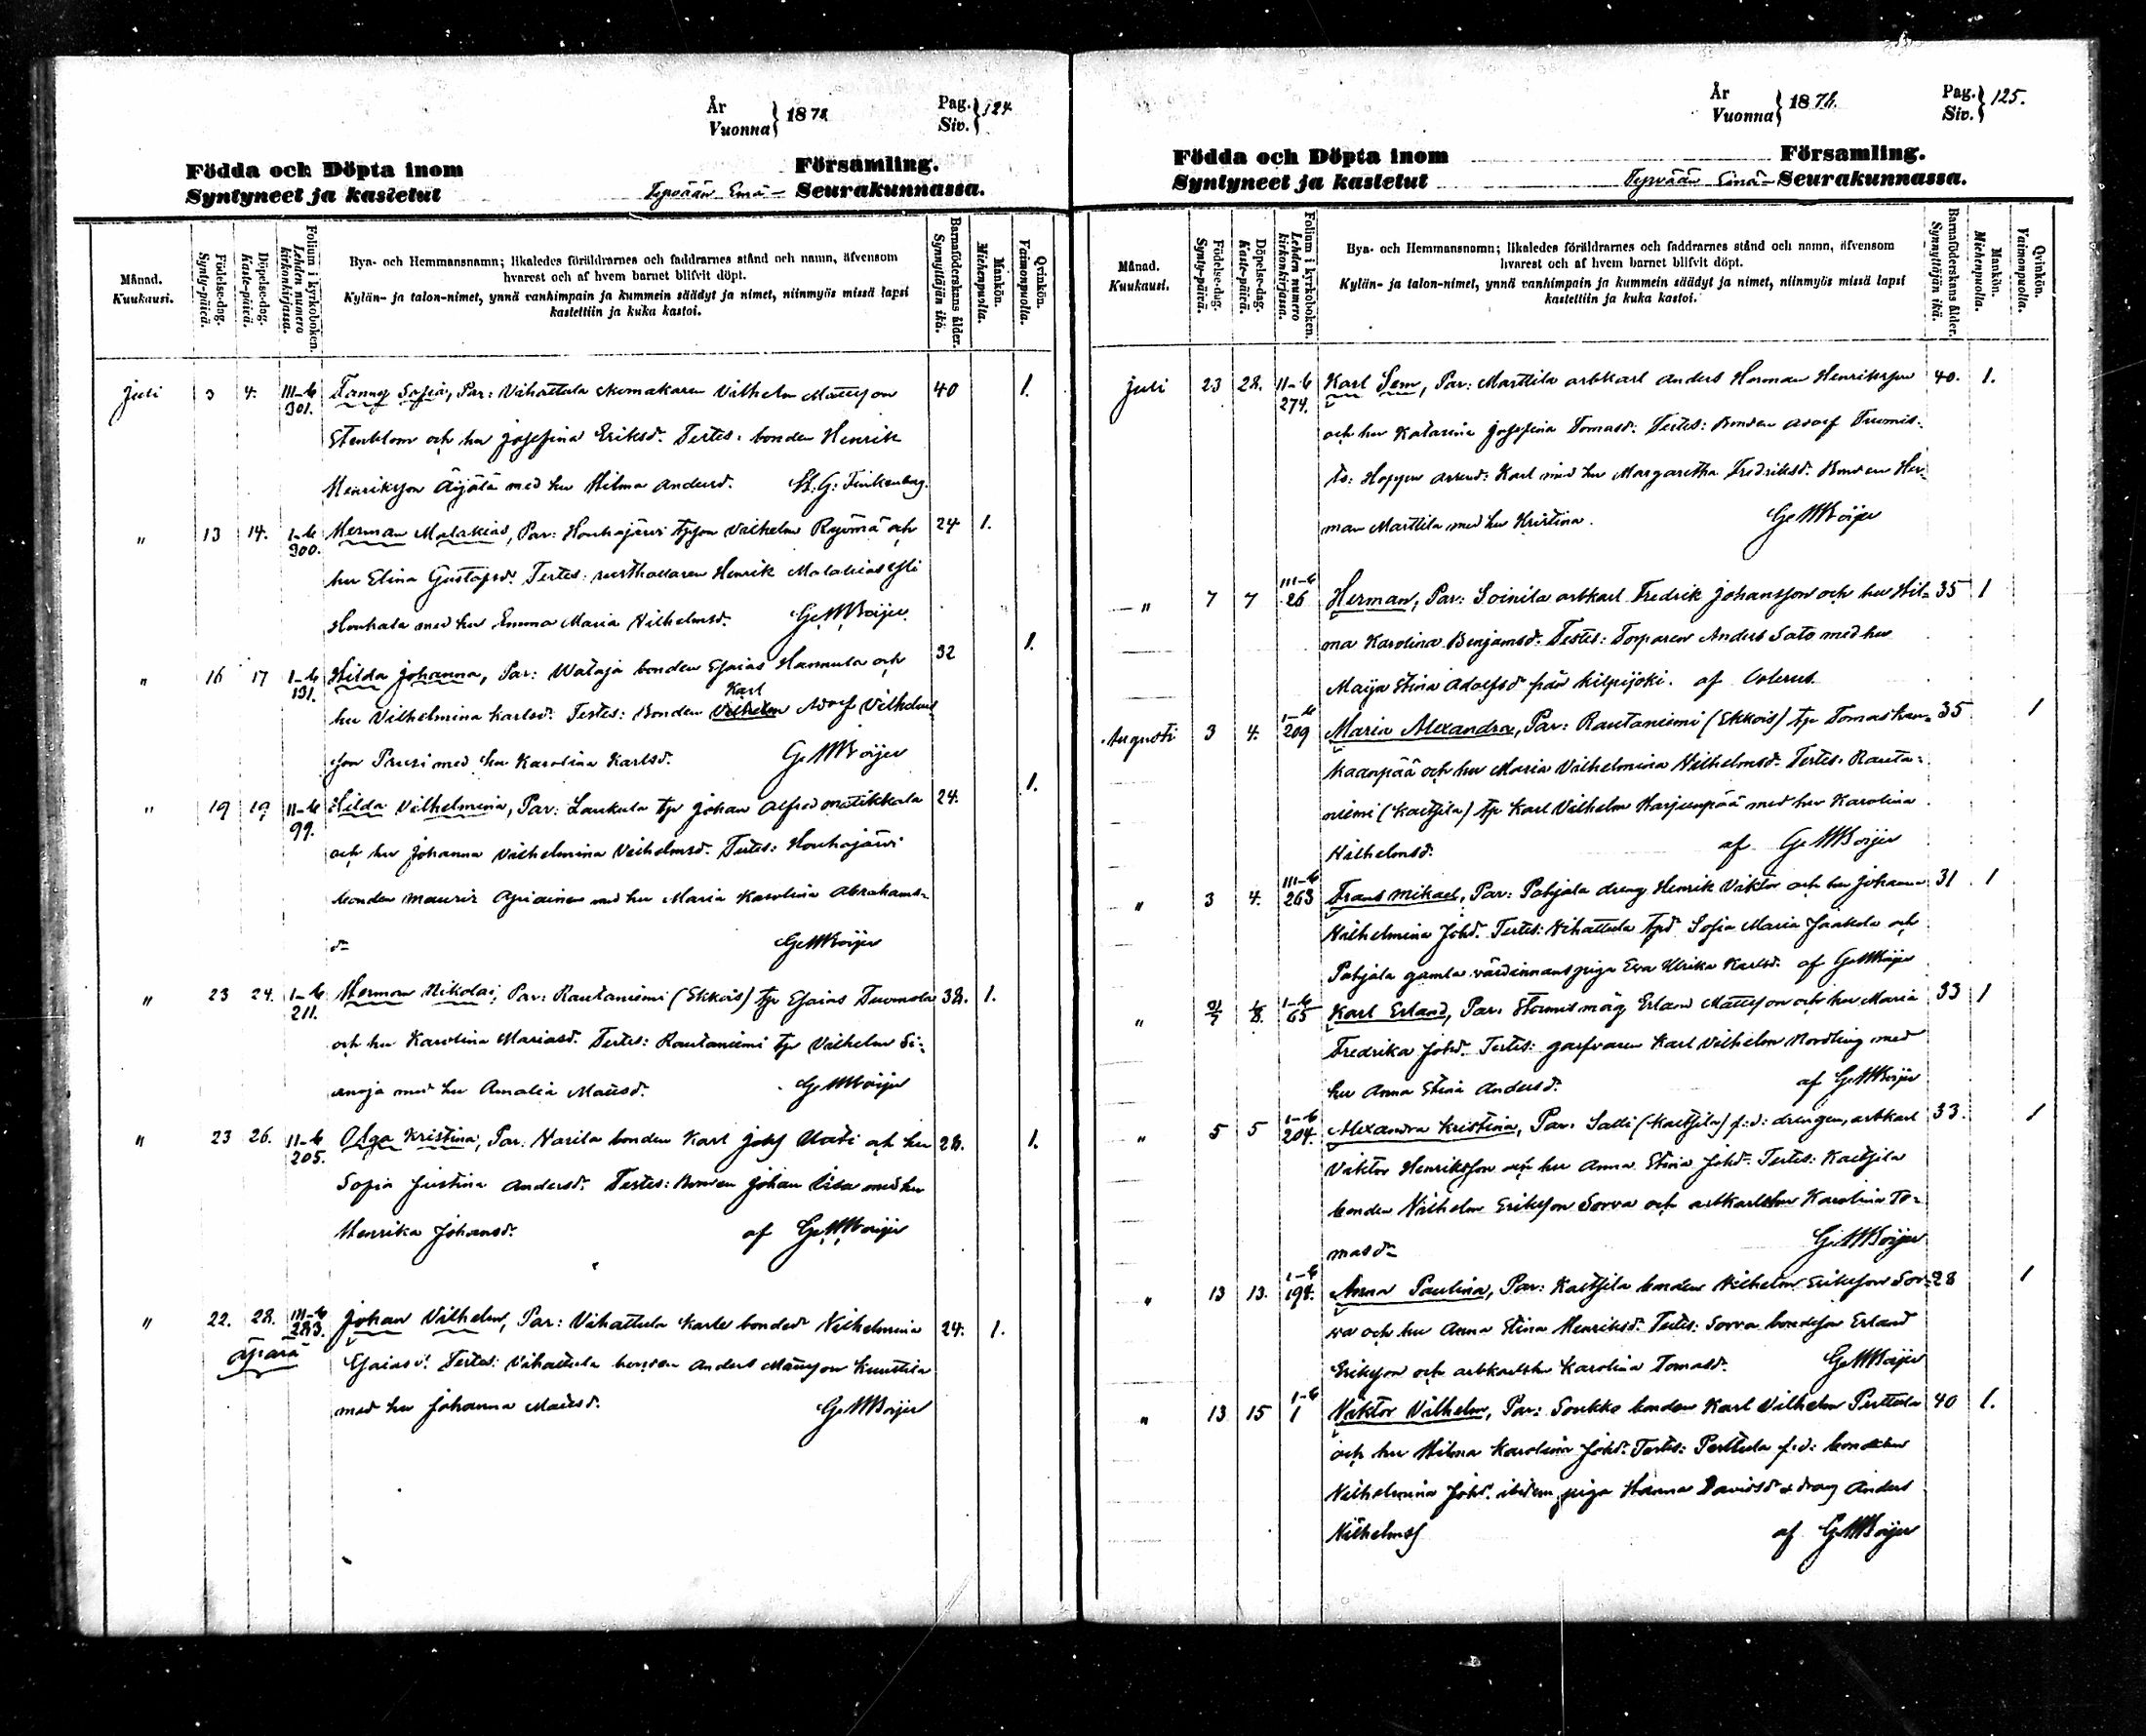 År
Vuonna } 1878
Pag.
Siv. } 124.
Födda och Döpta inom Församling.
Syntyneet ja kastetut Tyrvään Emä- Seurakunnassa.
Månad.
Kuukausi.
Födelse-dag.
Synty-päivä.
Döpelse-dag.
Kaste-päivä.
Folium i kyrkoboken.
Lehden numero kirkonkirjassa.
Bya- och Hemmansnamn; likaledes föräldrarnes och faddrarnes stånd och namn, äfvensom
hvarest och af hvem barnet blifvit döpt.
Kylän- ja talon-nimet, ynnä vanhimpain ja kummein säädyt ja nimet, niinmyös missä lapsi
kastettiin ja kuka kastoi.
Barnaföderskans ålder.
Synnyttäjän ikä.
Mankön.
Miehenpuolia.
Qvinkön.
Vaimonpuolia.
Juli 3 4. III-b 301. Fanny Sofia, Par: Vihattula skomakaren Vilhelm Mattsson 40 1.
Stenblom och hu Josefina Eriksd. Testes: bonden Henrik
Henriksson Äijälä med hu Hilma Andersd. K. G. Finkenberg.
" 13 14. I-b 300. Herman Malakias, Par: Houhajärvi Vilhelm och 24 1.
hu Elina Gustafsd. Testes: rusthållaren Henrik Malakias
Houhala med hu Emma Maria Vilhelmsd. G. W. Boijer.
" 16 17 I-b 131. Hilda Johanna, Par: Wataja bonden Esaias Hannula och 32 1.
Karl
hu Vilhelmina Karlsd. Testes: Bonden Vilhelm Adolf Vilhelms-
son med hu Karolina Karlsd. G. W. Boijer
" 19 19 II-b 99. Hilda Vilhelmina, Par: Laukula tp Johan Alfred Mätikkala 24. 1.
och hu Johanna Vilhelmina Vilhelmsd. Testes: Houhajärvi
bonden Mauriz med hu Maria Karolina Abrahams-
d. G. W. Boijer
" 23 24. I-b 211. Herman Nikolai, Par: Rautaniemi (Ekkois) tp Esaias Tuomola 38. 1.
och hu Karolina Mariasd. Testes: Rautaniemi tp Vilhelm Si-
anoja med hu Amalia Matsd. G. W. Boijer
" 23 26. II-b 205. Olga Kristina, Par: Harila bonden Karl Josef Uoti och hu 28. 1.
Sofia Justina Andersd. Testes: Bonden Johan med hu
Henrika Johansd. af G. W. Boijer
" 22. 28. III-b 283. Johan Vilhelm, Par: Vihattula Karle bonded Vilhelmina 24. 1.
äpärä Esaiasd. Testes: Vihattula bonden Anders Mattsson Knuuttila
med hu Johanna Matsd. G. W. Boijer
År
Vuonna } 1878.
Pag.
Siv. } 125.
Födda och Döpta inom Församling.
Syntyneet ja kastetut Tyrvään Emä- Seurakunnassa.
Månad.
Kuukausi.
Födelse-dag.
Synty-päivä.
Döpelse-dag.
Kaste-päivä.
Folium i kyrkoboken.
Lehden numero kirkonkirjassa.
Bya- och Hemmansnamn; likaledes föräldrarnes och faddrarnes stånd och namn, äfvensom
hvarest och af hvem barnet blifvit döpt.
Kylän- ja talon-nimet, ynnä vanhimpain ja kummein säädyt ja nimet, niinmyös missä lapsi
kastettiin ja kuka kastoi.
Barnaföderskans ålder.
Synnyttäjän ikä.
Mankön.
Miehenpuolia.
Qvinkön.
Vaimonpuolia.
Juli 23 28. II-b 274. Karl Sem, Par: Marttila arbkarl Anders Herman Henriksson 40. 1.
och hu Katarina Josefina Tomasd. Testes: Bonden Adolf Tuomis-
to: Hoppu arrend: Karl med hu Margaretha Fredriksd. Bonden Her-
man Marttila med hu Kristina. G. W. Boijer
" 7 7 III-b 26 Herman, Par: Soinila arbkarl Fredrik Johansson och hu Hil- 35 1
ma Karolina Benjamsd. Testes: Torparen Anders Sato med hu
Maija Stina Adolfsd från Kilpijoki. af Colerus.
Augusti 3 4. I-b 209 Maria Alexandra, Par: Rautaniemi (Ekkois) tp Tomas 35 1
Kaanpää och hu Maria Vilhelmina Vilhelmsd. Testes: Rauta-
niemi (Kaltsila) tp Karl Vilhelm Harjunpää med hu Karolina
Vilhelmsd. af G. W. Boijer
" 3 4. III-b 263 Frans Mikael, Par: Pohjala dreng Henrik Viktor och hu Johanna 31 1
Vilhelmina Johd. Testes: Vihattula tpd Sofia Maria Jaakola och
Pohjala gamla värdinnans piga Eva Ulrika Karlsd. af G. W. Boijer
" 31/7 1/8. I-b 65 Karl Erland, Par: Stormis måg Erland Mattsson och hu Maria 33 1
Fredrika Johd. Testes: garfvaren Karl Vilhelm Nordling med
hu Anna Stina Andersd. af G. W. Boijer
" 5 5 I-b 204. Alexandra Kristina, Par: Salli (Kaltsila) f.d: drengen, arbkarl 33. 1
Viktor Henriksson och hu Anna Stina Johd. Testes: Kaltsila
bonden Vilhelm Eriksson Sorva och arbkarlshu Karolina To-
masd. G. W. Boijer
" 13 13. I-b 198. Anna Paulina, Par: Kaltsila bonden Vilhelm Eriksson Sor- 28 1
va och hu Anna Stina Henriksd. Testes: Sorva bondeson Erland
Eriksson och arbkarlshu Karolina Tomasd. G. W. Boijer
" 13 15 I-b 1 Viktor Vilhelm, Par: Soukko bonden Karl Vilhelm Perttula 40 1.
och hu Hilma Karolina Johd. Testes: Perttula f.d: bondehu
Vilhelmina Johd. ibidem, piga Hanna Davidsd & dräng Anders
Vilhelmss af G. W. Boijer